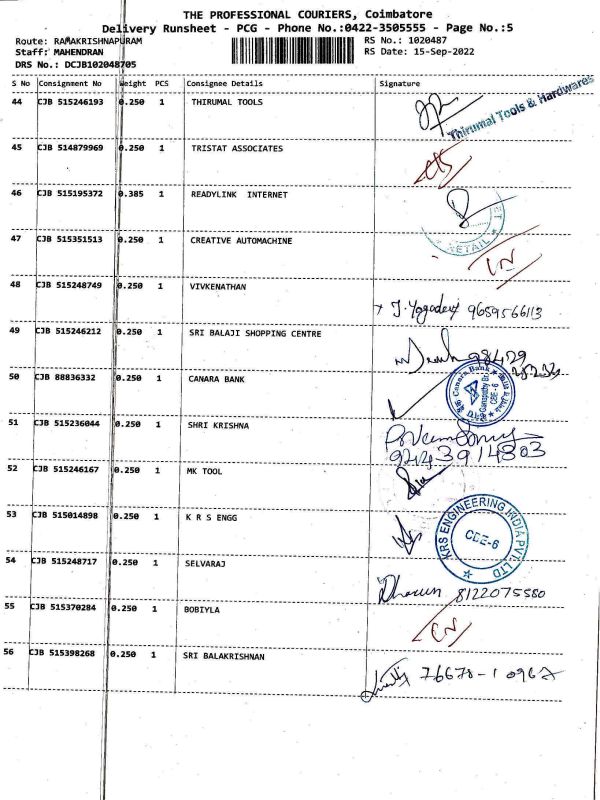 THE PROFESSIONAL COURIERS, Coimbatore
Delivery Runsheet - PCG - Phone No.:0422-3505555 - Page No.:5
Route: RAMAKRISHNAPURAM
RS No.: 1020487
Staff: MAHENDRAN
RS Date: 15-Sep-2022
DRS No.: DCJB102048705
S No Consignment No Weight PCS Consignee Details Signature
44 CJB 515246193 0.250 1 THIRUMAL TOOLS
Thirumal Tools & Hardwares
45 CJB 514879969 0.250 1 TRISTAT ASSOCIATES
46 CJB 515195372 0.385 1 READYLINK INTERNET
RETAIL
47 CJB 515351513 0.250 1 CREATIVE AUTOMACHINE
48 CJB 515248749 0.250 1 VIVKENATHAN
9659566113
49 CJB 515246212 0.250 1 SRI BALAJI SHOPPING CENTRE
50 CJB 88836332 0.250 1 CANARA BANK
Canara Bank
Ganapathy Br.
CBE-6
51 CJB 515236044 0.250 1 SHRI KRISHNA
52 CJB 515246167 0.250 1 MK TOOL
53 CJB 515014898 0.250 1 K R S ENGG
KRS ENGINEERING INDIA PVT. LTD
CBE-6
54 CJB 515248717 0.250 1 SELVARAJ
8122075580
55 CJB 515370284 0.250 1 BOBIYLA
56 CJB 515398268 0.250 1 SRI BALAKRISHNAN